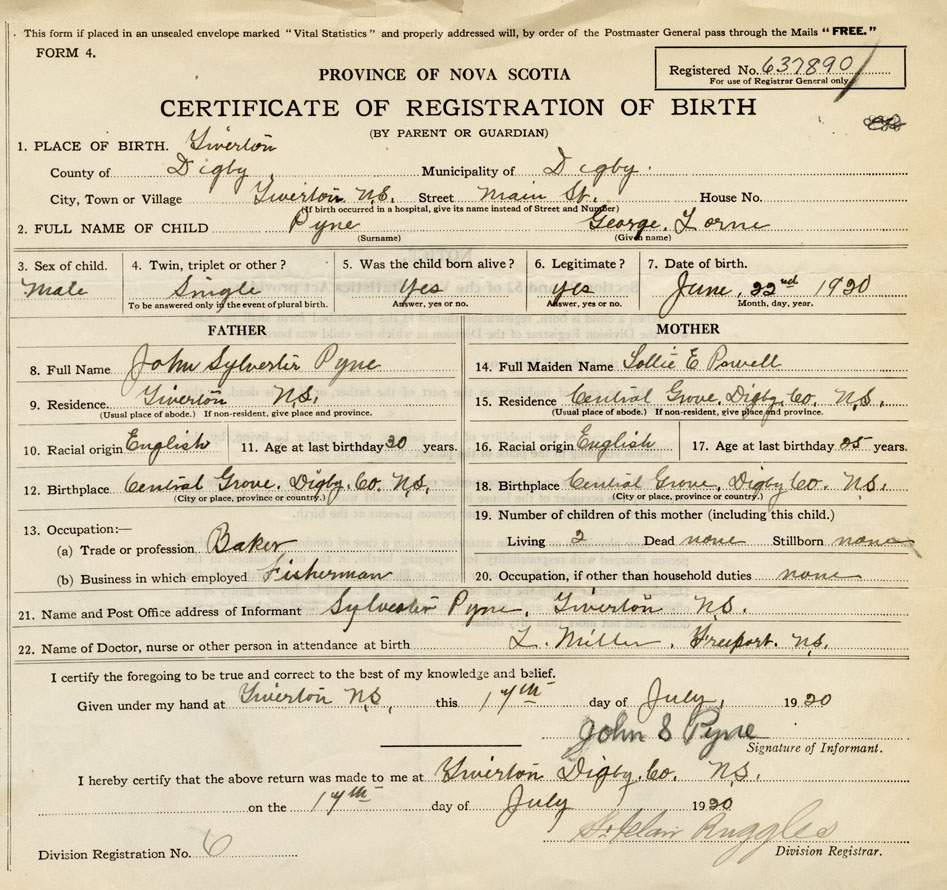 This form if placed in an unsealed envelope marked "Vital Statistics" and properly addressed will, by order of the Postmaster General pass through the Mails "FREE."
FORM 4.
Registered No. 637890
For use of Registrar General only
PROVINCE OF NOVA SCOTIA
CERTIFICATE OF REGISTRATION OF BIRTH
(BY PARENT OR GUARDIAN)
1. PLACE OF BIRTH. Tiverton
County of Digby Municipality of Digby.
City, Town or Village Tiverton N.S. Street Main St. House No.
(If birth occurred in a hospital, give its name instead of Street and Number)
2. FULL NAME OF CHILD Pyne George Lorne
(Surname) (Given name)
3. Sex of child. 4. Twin, triplet or other? 5. Was the child born alive? 6. Legitimate? 7. Date of birth.
Male Single Yes yes June, 22nd 1920
To be answered only in the event of plural birth. Answer, yes or no. Answer, yes or no. Month, day, year.
FATHER MOTHER
8. Full Name John Sylvester Pyne 14. Full Maiden Name Lollie E Powell
9. Residence. Tiverton N.S. 15. Residence Central Grove, Digby. Co. N.S.
(Usual place of abode.) If non-resident, give place and province. (Usual place of abode.) If non-resident, give place and province.
10. Racial origin English 11. Age at last birthday 30 years. 16. Racial origin English 17. Age at last birthday 25 years.
12. Birthplace Central Grove. Digby. Co. N.S. 18. Birthplace Central Grove, Digby Co. N.S.
(City or place, province or country.) (City or place, province or country.)
13. Occupation:— 19. Number of children of this mother (including this child.)
(a) Trade or profession Baker Living 2 Dead none Stillborn none
(b) Business in which employed Fisherman 20. Occupation, if other than household duties none
21. Name and Post Office address of Informant Sylvester Pyne, Tiverton N.S.
22. Name of Doctor, nurse or other person in attendance at birth L. Miller, Freeport. N.S.
I certify the foregoing to be true and correct to the best of my knowledge and belief.
Given under my hand at Tiverton N.S. this 17th day of July, 1930
John S Pyne
Signature of Informant.
I hereby certify that the above return was made to me at Tiverton Digby. Co. N.S.
on the 17th day of July 1930
Ruggles
Division Registration No. 6 Division Registrar.